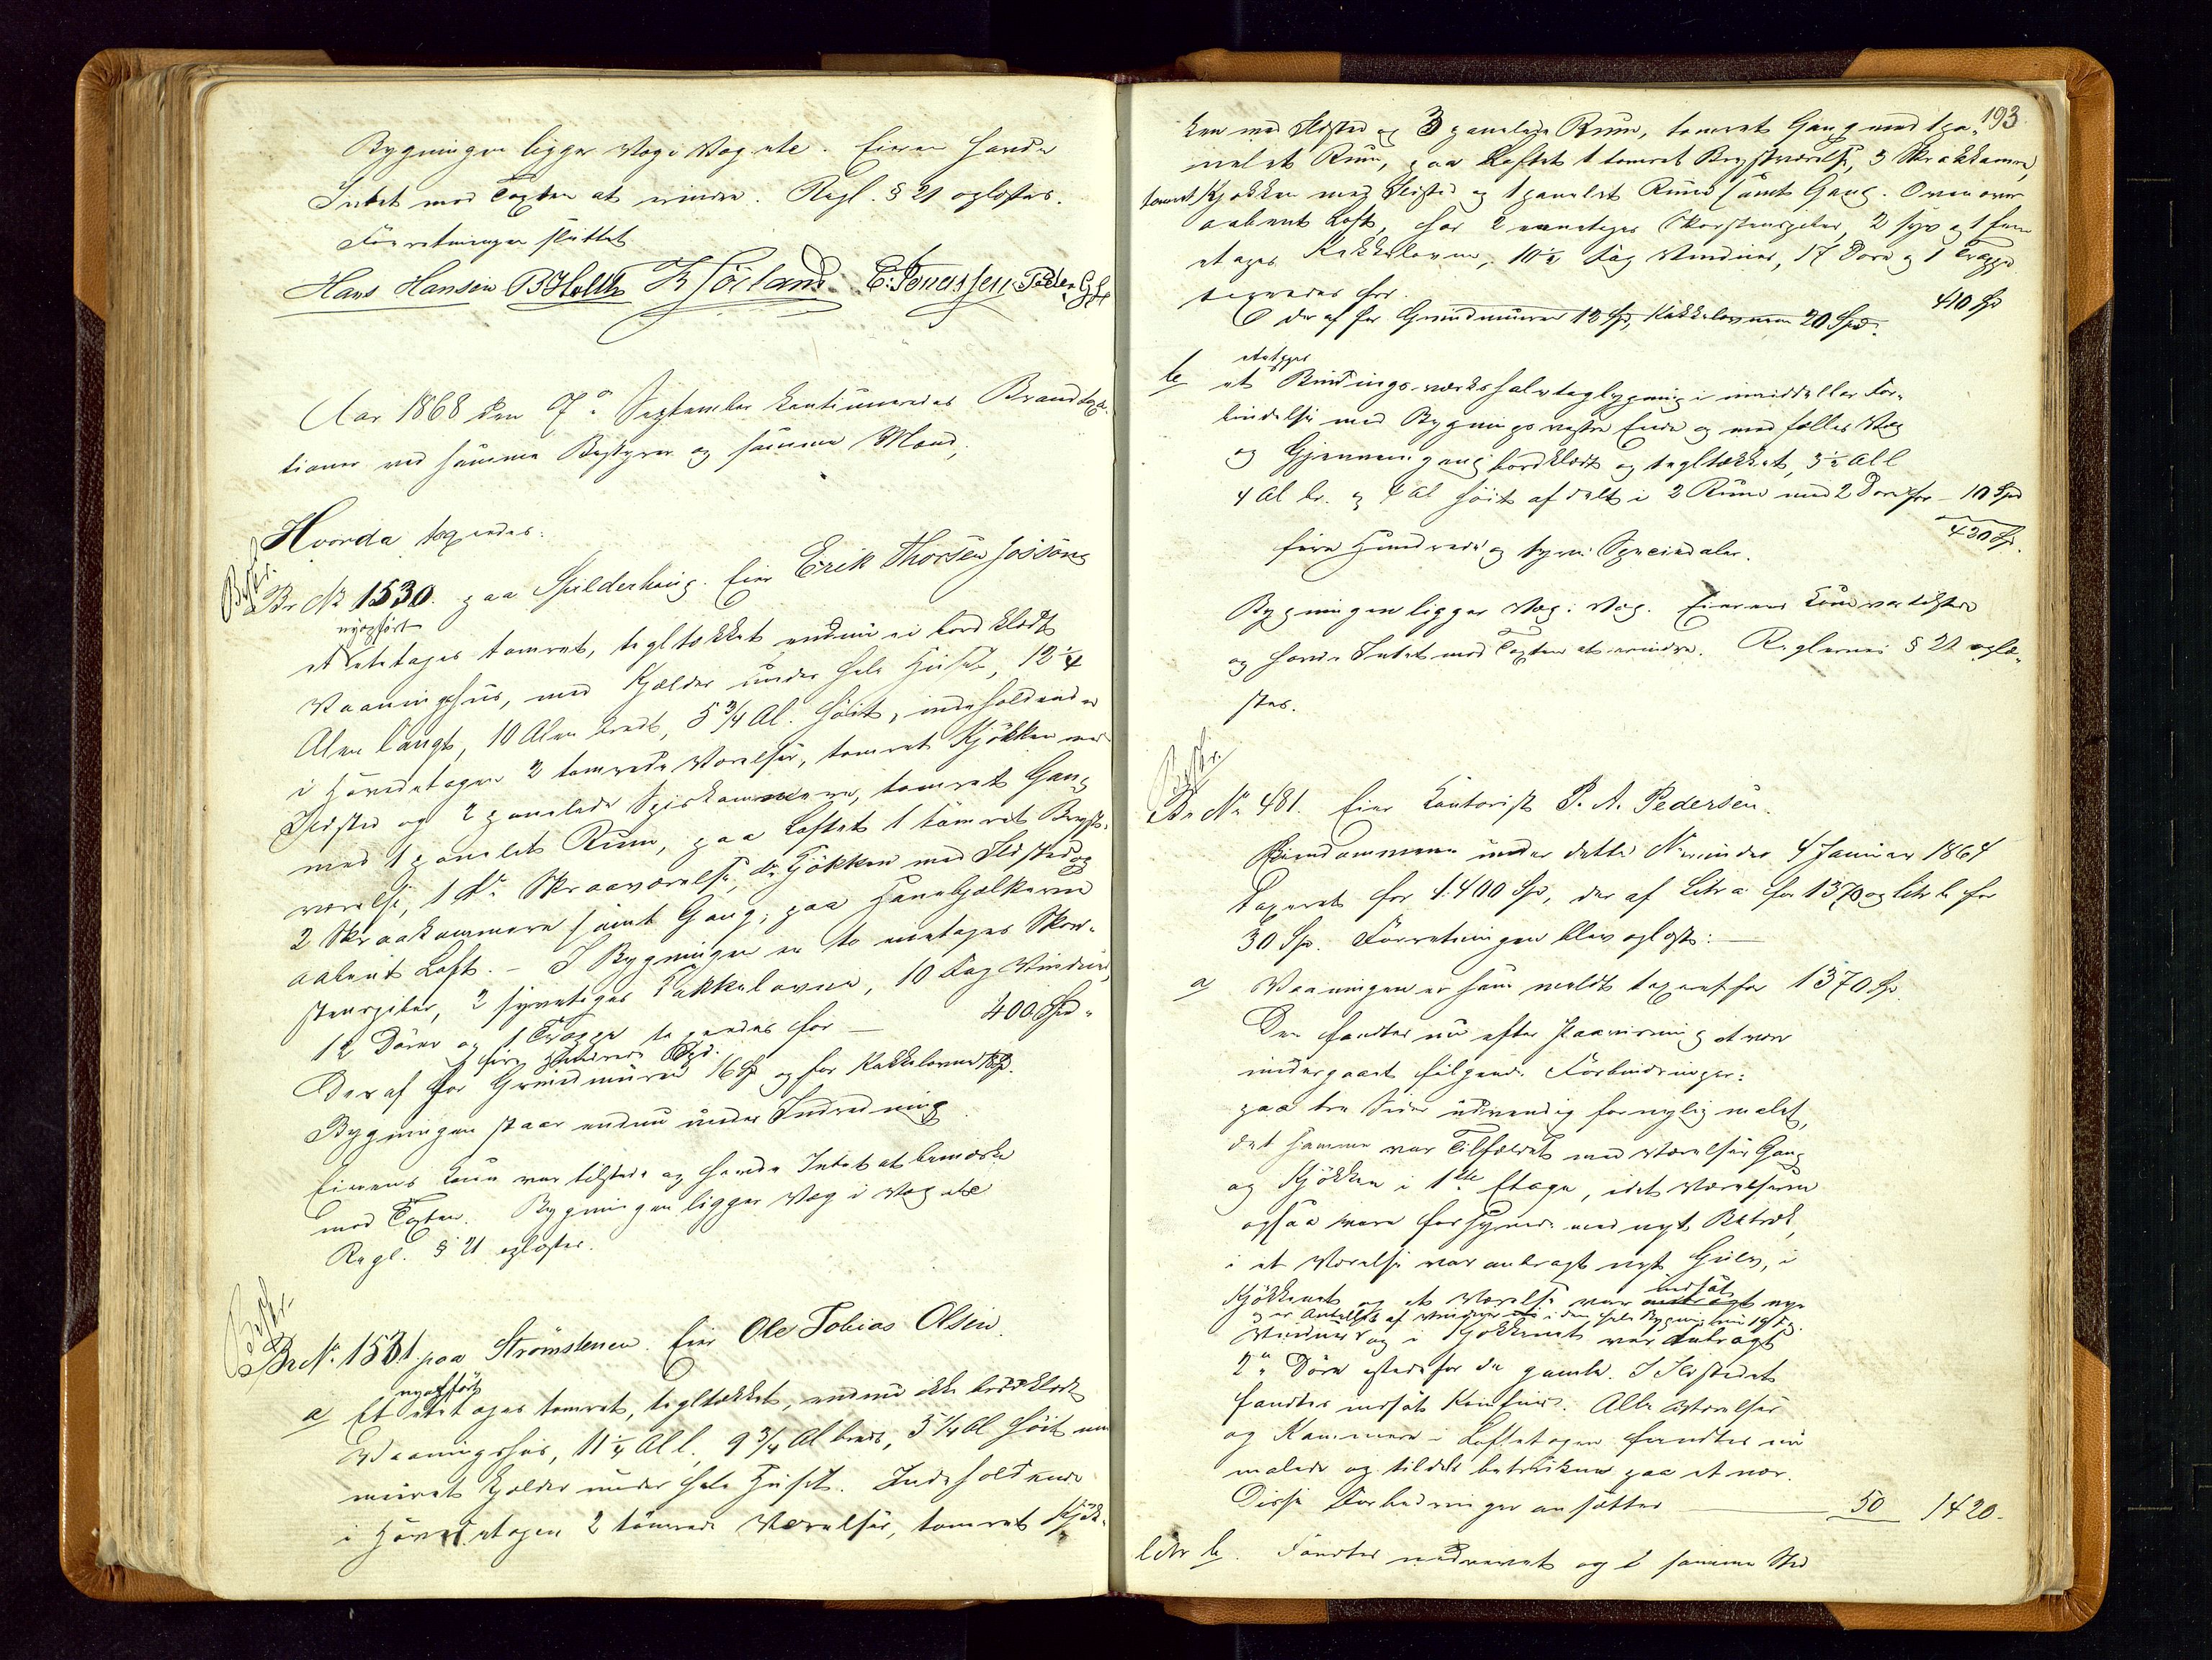 Bygningen ligger Væg i Væg etc. Eieren havde
Intet mod Taxten at erindre. Regl. § 21 oplæstes.
Forretningen sluttet
Hans Hansen B Holth K Sörland E. Tonessen Peder
Aar 1868 den 7de September kontinueredes Brandtaxa-
tioner ved samme Bestyrer og samme Mænd,
Hvorda taxeredes:
Beskr.
Br No 1530 paa Spilderhaug. Eier Erik Thorsen Jossang
nyopført
et etetages tømret, tegltækket endnu ei bordklædt
Vaaningshus, med Kjelder under hele Huset, 12 1/4
Alen langt, 10 Alen bredt, 5 3/4 Al. høit, indeholdende
i Hovedetagen 2 tømrede Værelser, tømret Kjøkken med
Ildsted og 2 panelede Spiskammere, tømret Gang
med 1 panelet Rum, paa Loftet 1 tømret Bryst-
værelse, 1 do Skraaværelse, do Kjøkken med Ildsted og
2 Skraakammere samt Gang, paa Hanebjelkerne
aabent Loft. – I Bygningen er to enetages Skor-
stenspiber, 2 syvetages Kakkelovne, 10 Fag Vinduer,
12 Døre og 1 Trappe taxeredes for — 400 Spd.
fire Hundrede Spd.
Deraf for Grundmuren 16 Sp og for Kakkelovne 18 Sp.
Bygningen staar endnu under Indredning
Eierens Kone var tilstede og havde Intet at bemærke
mod Taxten. Bygningen ligger Væg i Væg etc
Regl. § 21 oplæstes.
Beskr.
Br No. 1531 paa Strömstenen. Eier Ole Tobias Olsen.
nyopført
a Et etetages tømret, tegltækket, endnu ikke bordklædt
Vaaningshus, 11 1/4 Al l. 9 3/4 Al bredt, 5 1/4 Al høit med
muret Kjelder under hele Huset. Indeholdende
i Hovedetagen 2 tømrede Værelser, tømret Kjøk-
193
ken med Ildsted og 3 panelede Rum, tømret Gang med 1 pa-
nelet Rum, paa Loftet 1 tømret Brystværelse, 3 Skrakkamre,
tømret Kjøkken med Ildsted og 1 panelet Rum samt Gang. Oven over
aabent Loft, har 2 enetages Skorstenspiber, 2 syv og 1 fem
etages Kakkelovne, 10 1/2 Fag Vinduer, 17 Døre og 1 Trappe
taxeredes for 410 Sp
der af for Grundmuren 12 Sp, Kakkelovnene 20 Spd.
etetages
b et Bindingsværkshalvtagbygning i umiddelbar For-
bindelse med Bygnings vestre Ende og med fælles Væg
og Gjennemgang bordklædt og tegltækket, 3 1/2 Al l
4 Al br. og 4 Al høit afdelt i 2 Rum med 2 Døre for – 10 Spd
420 Sp.
fire Hundrede og tyve Speciedaler.
Bygningen ligger Væg i Væg. Eierens Kone var tilstede
og havde Intet mod Taxten at erindre. Reglernes § 21 oplæ-
stes.
Beskr.
Br No 481. Eier Kontorist P. A. Pedersen.
Eiendommen under dette No er under 4 Januar 1864
taxeret for 1.400 Sp, der af Litr a for 1370 og Litr b for
30 Sp. Forretningen blev oplæst: —
a Vaaningen er som meldt taxeret for 1370 Sp.
Den fandtes nu efter Paavisning at være
undergaaet følgende Forbedringer:
paa tre Sider udvendig fornylig malet,
det samme var Tilfældet med Værelser Gang
og Kjøkken i 1ste Etage, idet Værelserne
ogsaa vare forsynede med nyt Betræk,
i et Værelse var anbragt nyt Gulv, i
indsat
Kjøkkenet og et Værelse var anbragt nye
og er Antallet af Vinduer i den hele Bygning nu 19 Fag.
Vinduer og i Kjøkkenet var anbragt
2de Døre istedetfor de gamle. I Ildstedet
fandtes indsat Komfur. Alle Værelser
og Kammere i Loftetagen fandtes nu
malede og tildels betrukne paa et nær.
Disse Forbedringer ansættes — 50 1420.
Litr b. Fandtes nedrevet og i samme Sted